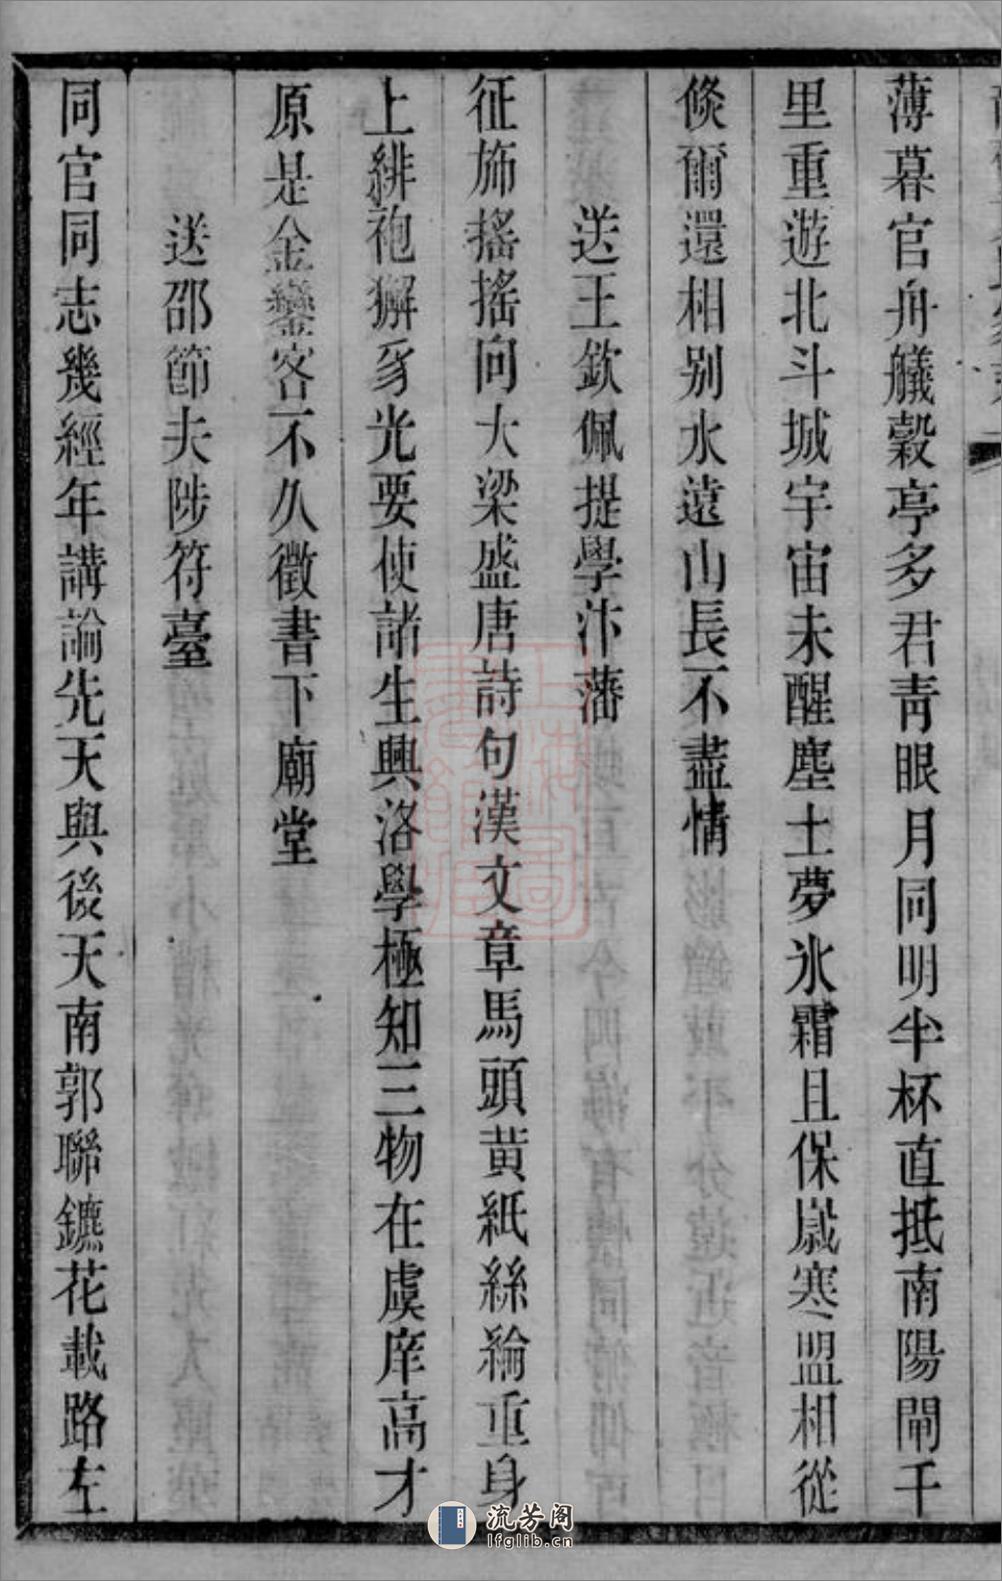 薄暮官舟艤穀亭多君靑眼月同明半杯直抵南陽閘千
里重遊北斗城宇宙未醒塵土夢氷霜且保嵗寒盟相從
倐爾還相别水遠山長不盡情
送王欽佩提學汴藩
征斾搖搖向大梁盛唐詩句漢文章馬頭黄紙絲綸重身
上緋袍獬豸光要使諸生興洛學極知三物在虞庠高才
原是金鑾客不久徵書下廟堂
送邵節夫陟符臺
同官同志幾經年講論先天與後天南郭聯鑣花載路左
流芳阁
lfglib.cn